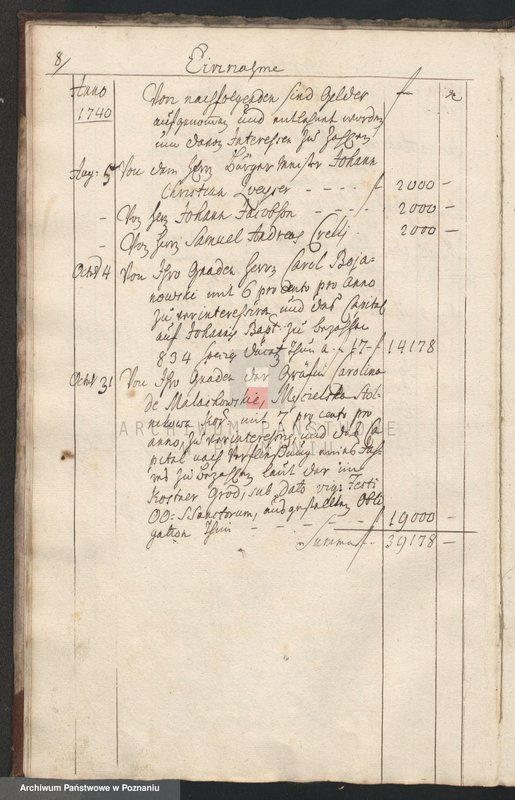 8/
Einnahme
Anno
1740
Von nachfolgenden sind Gelder
aufgenommen und entlehnet worden
um davon Interessen zu zahlen
Aug: 5 Von dem Herrn Bürger Meister Johann
Christian Zveyser - - - - f 2000 -
- Von Herrn Johann Jacobson - - - - 2000 -
- Von Herrn Samuel Andreas Crelly. 2000 -
Octbr 4 Von Ihro Gnaden Herrn Carol Boja-
nowski mit 6 pro Cento pro Anno
zu verinteressiren und das Capital
auf Johannis Bapt: zu bezahlen
834 thun a - 17 - f 14178
Octbr 31 Von Ihro Gnaden der Gräfin Carolina
de Malachowskie, Mycielska Stol-
nikowa mit 7 pro cento pro
anno, zu verinteressiren und das Ca-
pital nach Verfließung eines Jah-
res zu bezahlen laut der im
Kostner Grod, sub Dato vig: Festi
OO: SSanctorum, ausgestellten Obli
gation thun - - - - - f 19000 -
Summa - f 39178 -
ARCHIWUM PAŃSTWOWE
Archiwum Państwowe w Poznaniu